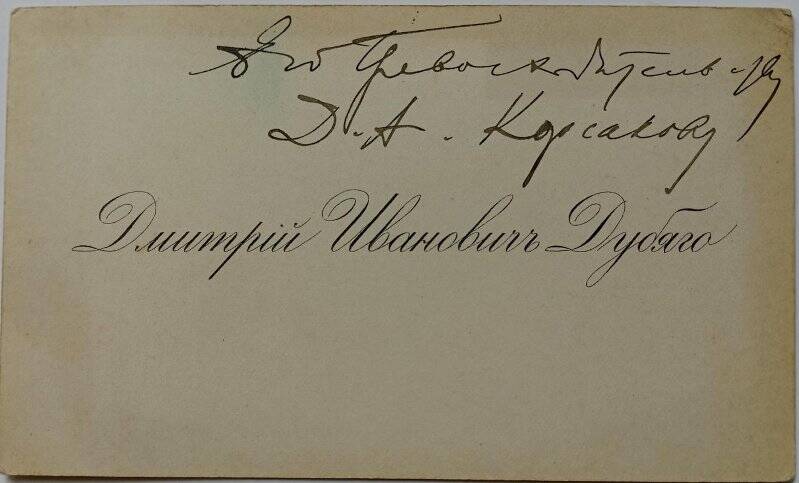 Его Превосходительству
Д. А. Корсакову
Дмитрій Ивановичъ Дубяго